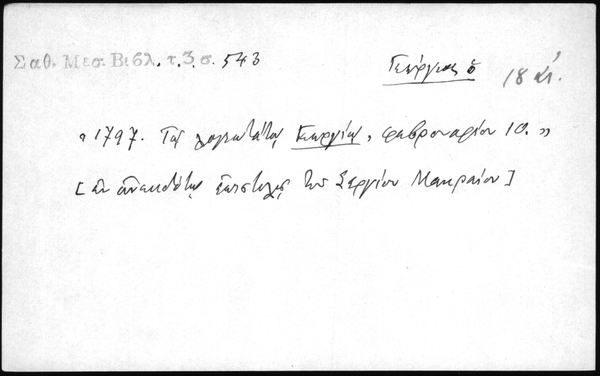 Σαθ. Μεσ. Βιβλ. τ. 3 σ. 543
Γεώργιος ὁ
18 αἰ.
« 1797. Τῷ λογιωτάτῳ Γεωργίῳ, φεβρουαρίου 10. »
[ἐν ἀνεκδότῳ ἐπιστολῇ τοῦ Σεργίου Μακραίου]